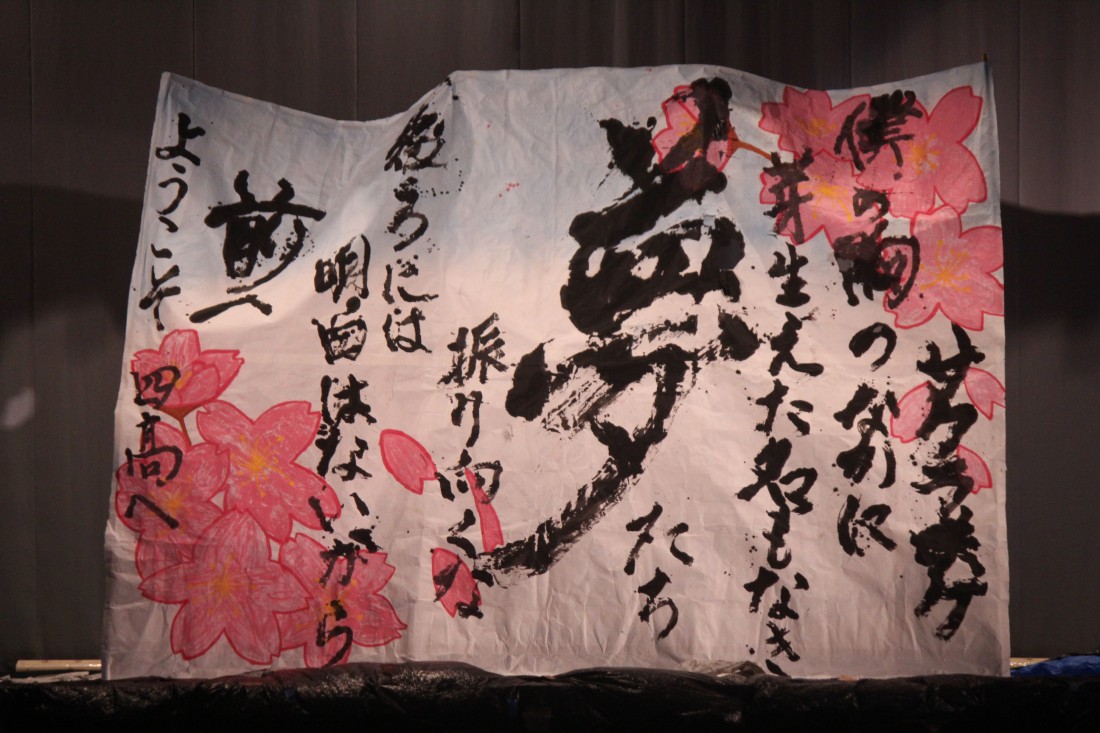 サクラ咲ケ
僕の胸のなかに
芽生えた名もなき
夢
たち
振り向くな
後ろには
明日はないから
前へ
ようこそ
四高へ